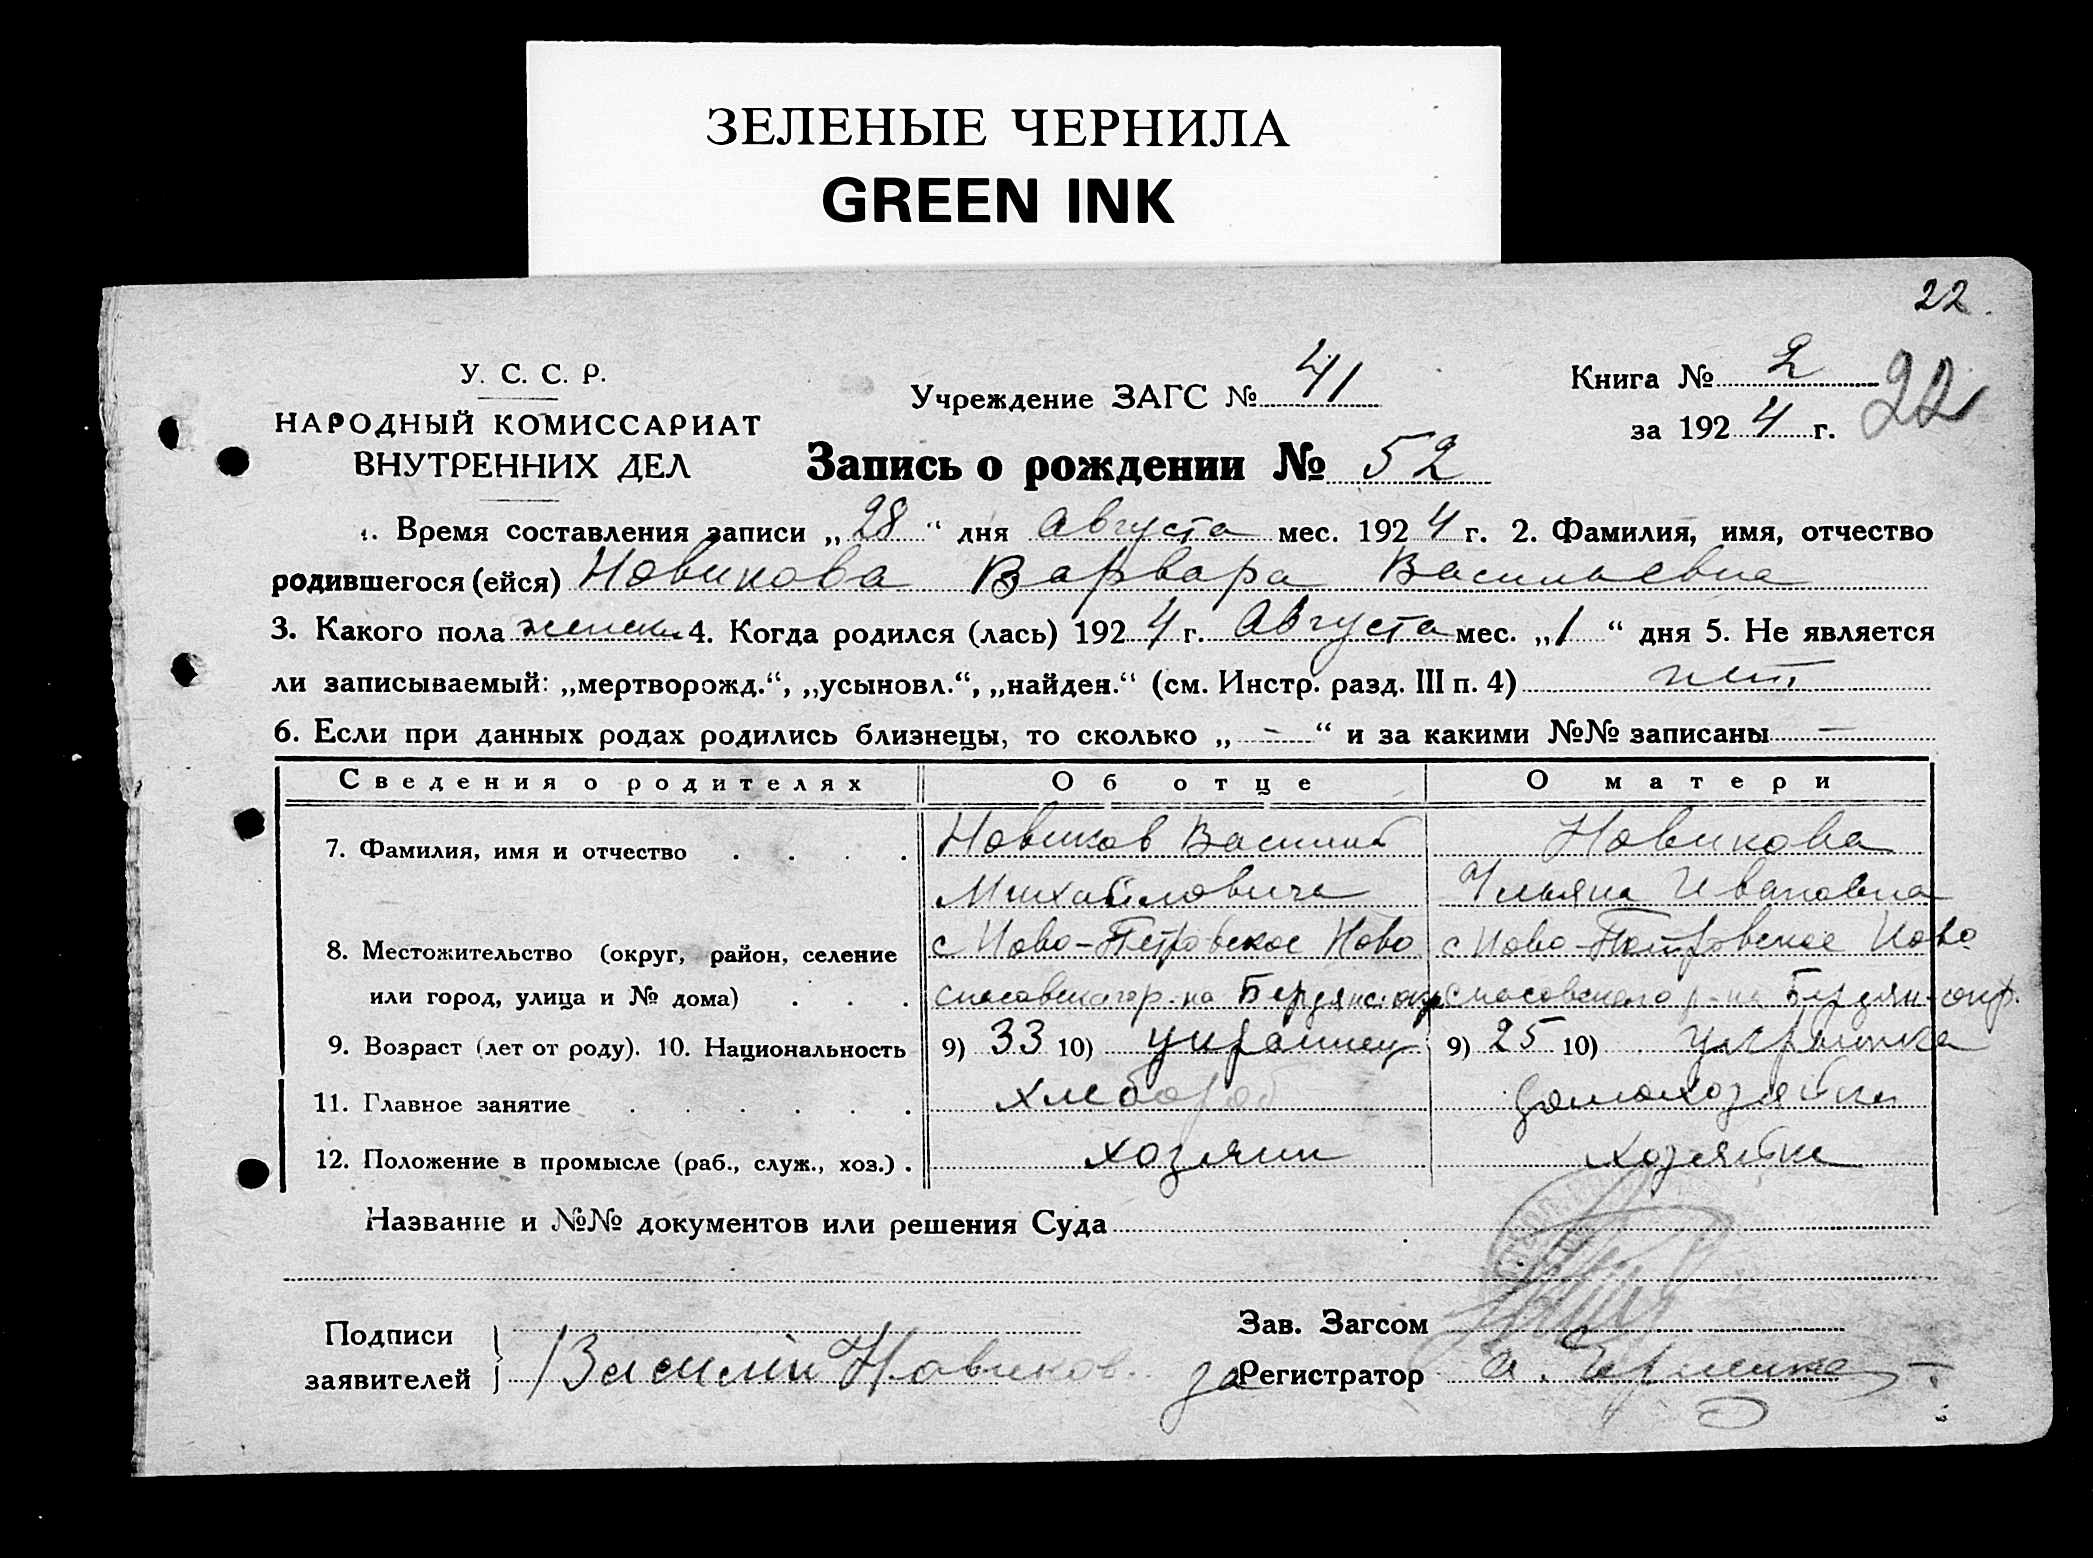 ЗЕЛЕНЫЕ ЧЕРНИЛА
GREEN INK
22.
У. С. С. Р.
НАРОДНЫЙ КОМИССАРИАТ
ВНУТРЕННИХ ДЕЛ
Учреждение ЗАГС № 41
Книга № 2
за 1924 г.
22
Запись о рождении № 52
1. Время составления записи „28“ дня Августа мес. 1924 г. 2. Фамилия, имя, отчество
родившегося (ейся) Новикова Варвара Васильевна
3. Какого пола женск. 4. Когда родился (лась) 1924 г. Августа мес. „1“ дня 5. Не является
ли записываемый: „мертворожд.“, „усыновл.“, „найден.“ (см. Инстр. разд. III п. 4) нет.
6. Если при данных родах родились близнецы, то сколько „ - “ и за какими №№ записаны —
Сведения о родителях Об отце О матери
7. Фамилия, имя и отчество . . . . Новиков Василий Новикова
Михайлович Ульяна Ивановна
8. Местожительство (округ, район, селение с Ново-Петровское Ново с Ново-Петровское Ново
или город, улица и № дома) . . . спасовского р-на Бердянс. окр спасовского р-на Бердян. окр.
9. Возраст (лет от роду). 10. Национальность 9) 33 10) украинец 9) 25 10) украинка
11. Главное занятие . . . . . . хлебороб домохозяйка
12. Положение в промысле (раб., служ., хоз.) . хозяин хозяйка
Название и №№ документов или решения Суда
Подписи
заявителей } Василий Новиков.
Зав. Загсом
за Регистратор